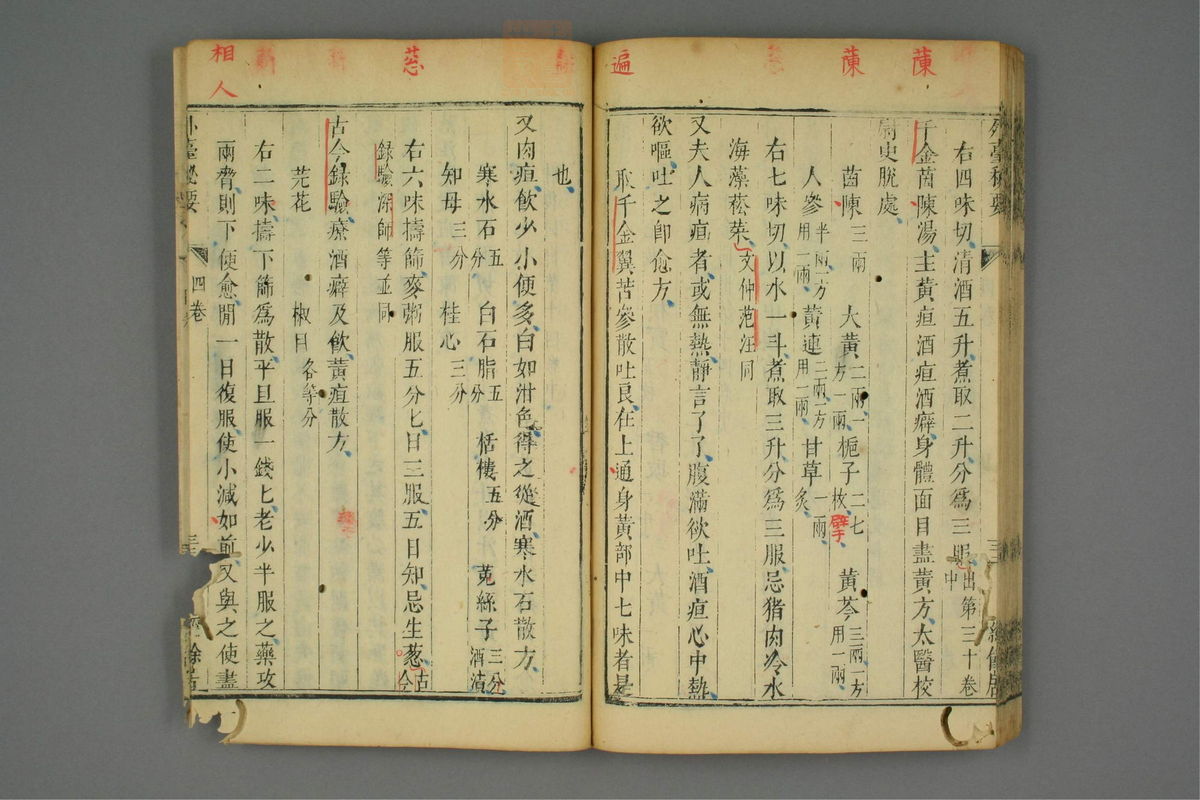 右四味切清酒五升煮取二升分為三服出第三十卷中
千金茵陳湯主黃疸酒疸酒癖身體面目盡黃方太醫校
尉史脫處
茵陳三兩 大黃二兩一方一兩 梔子二七枚 黃芩三兩一方用一兩
人參半兩一方用一兩 黃連二兩一方用一兩 甘草一兩炙
右七味切以水一斗煮取三升分為三服忌猪肉冷水
海藻菘菜文仲范汪同
又夫人病疸者或無熱靜言了了腹滿欲吐酒疸心中熱
欲嘔吐之即愈方
取千金翼苦參散吐艮在上通身黃部中七味者是
遍
蔯
蔯
也
又肉疸飲少小便多白如泔色得之從酒寒水石散方
寒水石五分 白石脂五分 栝樓五分 菟絲子三分酒漬
知母三分 桂心三分
右六味擣篩麥粥服五分匕日三服五日知忌生葱古今
録驗深師等並同
古今録驗療酒癖及飲黃疸散方
芫花 椒目各等分
右二味擣下篩為散平旦服一錢匕老少半服之藥攻
兩脅則下便愈閒一日復服使小減如前又與之使盡
四卷
相人